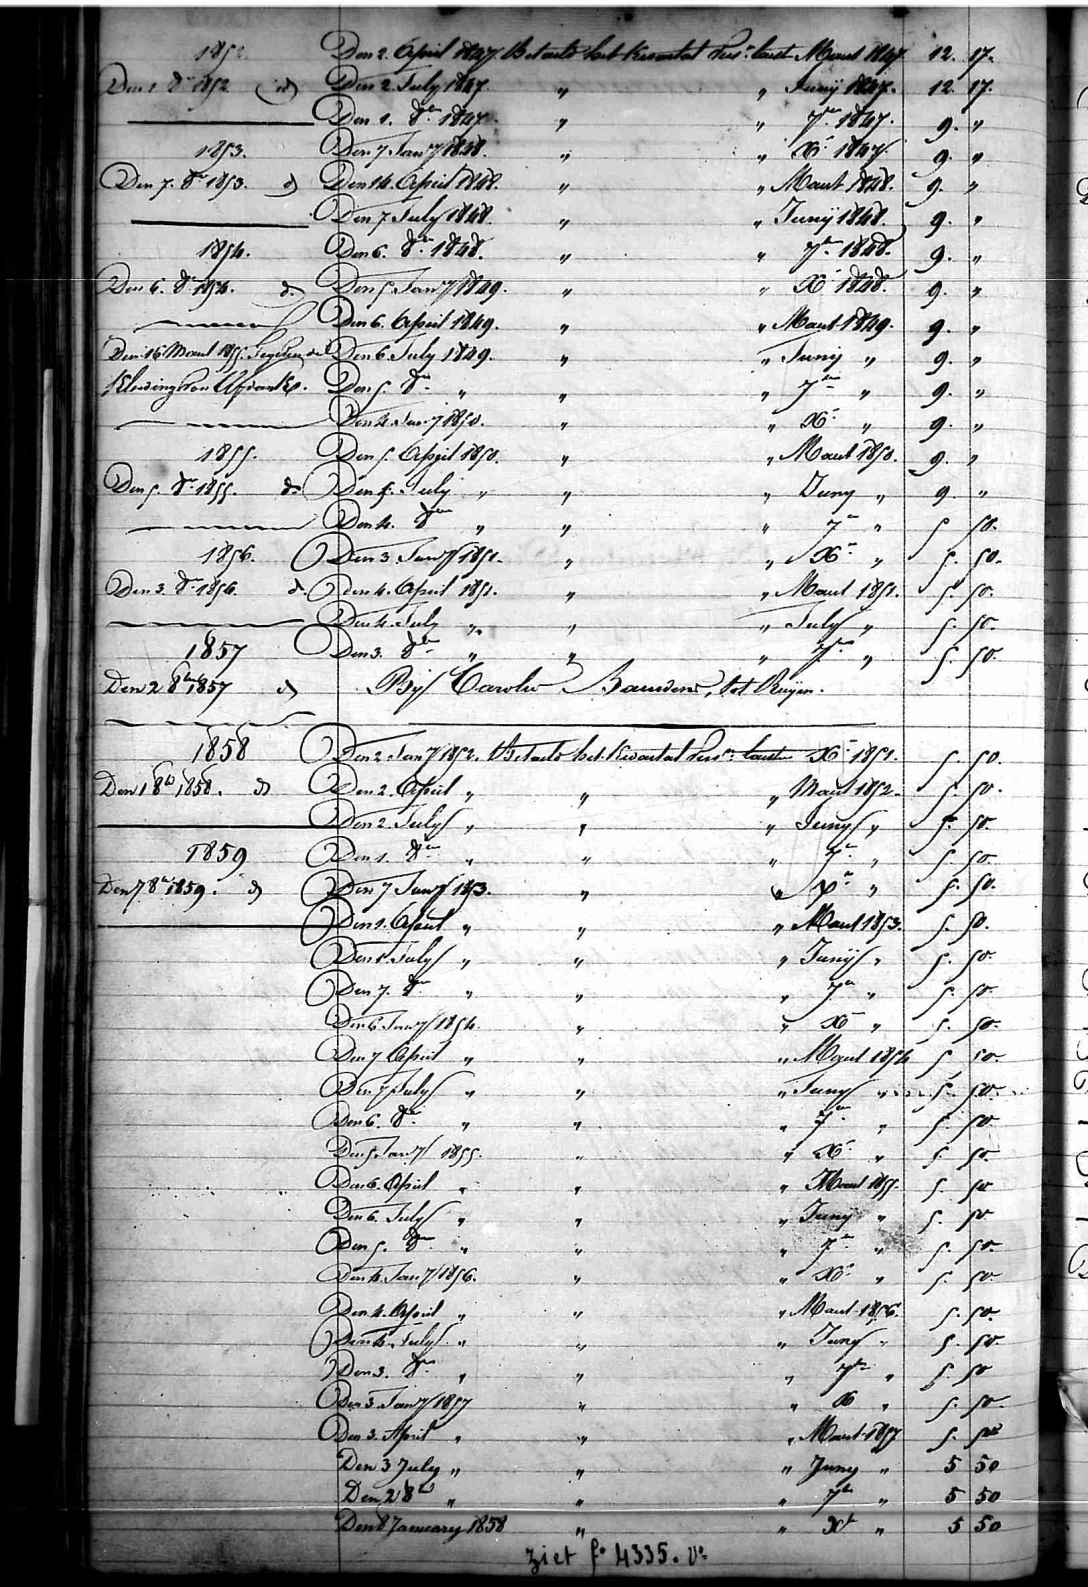 1852 Den 2. April 1847. Betaald het Kwartal laast Maart 1847 12. 17.
Den 1. 8er 1852 d Den 2 July 1847. " " Juny 1847. 12 17.
Den 1. 8er 1847 " " 7er 1847. 9. "
1853. Den 7 Jany 1848. " " Xr 1847 9. "
Den 7. 8er 1853. d Den 14. April 1848. " " Maart 1848. 9. "
Den 7 July 1848. " " Junij 1848. 9. "
1854. Den 6. 8er 1848. " " 7er 1848. 9. "
Den 6. 8er 1854. d. Den 5. Jany 1849. " " Xr 1848. 9. "
Den 6. April 1849. " " Maart 1849. 9. "
Den 16 Maart 1855. Den 6 July 1849. " " Junij " 9. "
Kleeding Den 5. 8er " " " 7er " 9. "
Den 4. Jany 1850. " " Xr " 9. "
1855. Den 5. April 1850. " " Maart 1850. 9. "
Den 5. 8er 1855. d. Den 5. July " " " Juny " 9. "
Den 4. 8er " " " 7er " 5 50.
1856. Den 3 Jany 1851. " " Xr " 5. 50.
Den 3. 8er 1856. d. Den 4. April 1851. " " Maart 1851. 5. 50.
Den 4. July " " " July " 5. 50.
1857 Den 3. 8er " " " 7er " 5. 50.
Den 2 8er 1857 d Bij Carolus tot Ruijen.
1858 Den 2 Jany 1852. Betaald het Kwartal laast Xr 1851. 5. 50.
Den 1 8er 1858. d Den 2. April " " " Maart 1852. 5. 50.
Den 2. July " " " Juny " 5. 50.
1859 Den 1. 8er " " " 7er " 5 50.
Den 7. 8er 1859. d Den 7 Jany 1853. " " Xr " 5. 50.
Den 1. April " " " Maart 1853. 5. 50.
Den 1. July " " " Junij " 5. 50.
Den 7. 8er " " " 7er " 5. 50.
Den 6. Jany 1854. " " Xr " 5. 50.
Den 7 April " " " Maart 1854 5 50.
Den 7 July " " " Juny " 5. 50.
Den 6. 8er " " " 7er " 5. 50.
Den 5 Jany 1855. " " Xr " 5. 50.
Den 6. April " " " Maart 1855. 5. 50
Den 6. July " " " Juny " 5. 50
Den 5. 8er " " " 7er " 5. 50.
Den 4. Jany 1856. " " Xr " 5. 50.
Den 4. April " " " Maart 1856. 5. 50.
Den 4. July " " " Juny " 5. 50.
Den 3. 8er " " " 7er " 5. 50
Den 3. Jany 1857 " " X " 5. 50.
Den 3. April " " " Maart 1857 5. 50
Den 3 July " " " Juny " 5 50
Den 2 8er " " " 7er " 5 50
Den 8 January 1858 " " Xr " 5 50
ziet fo 4335. Vo